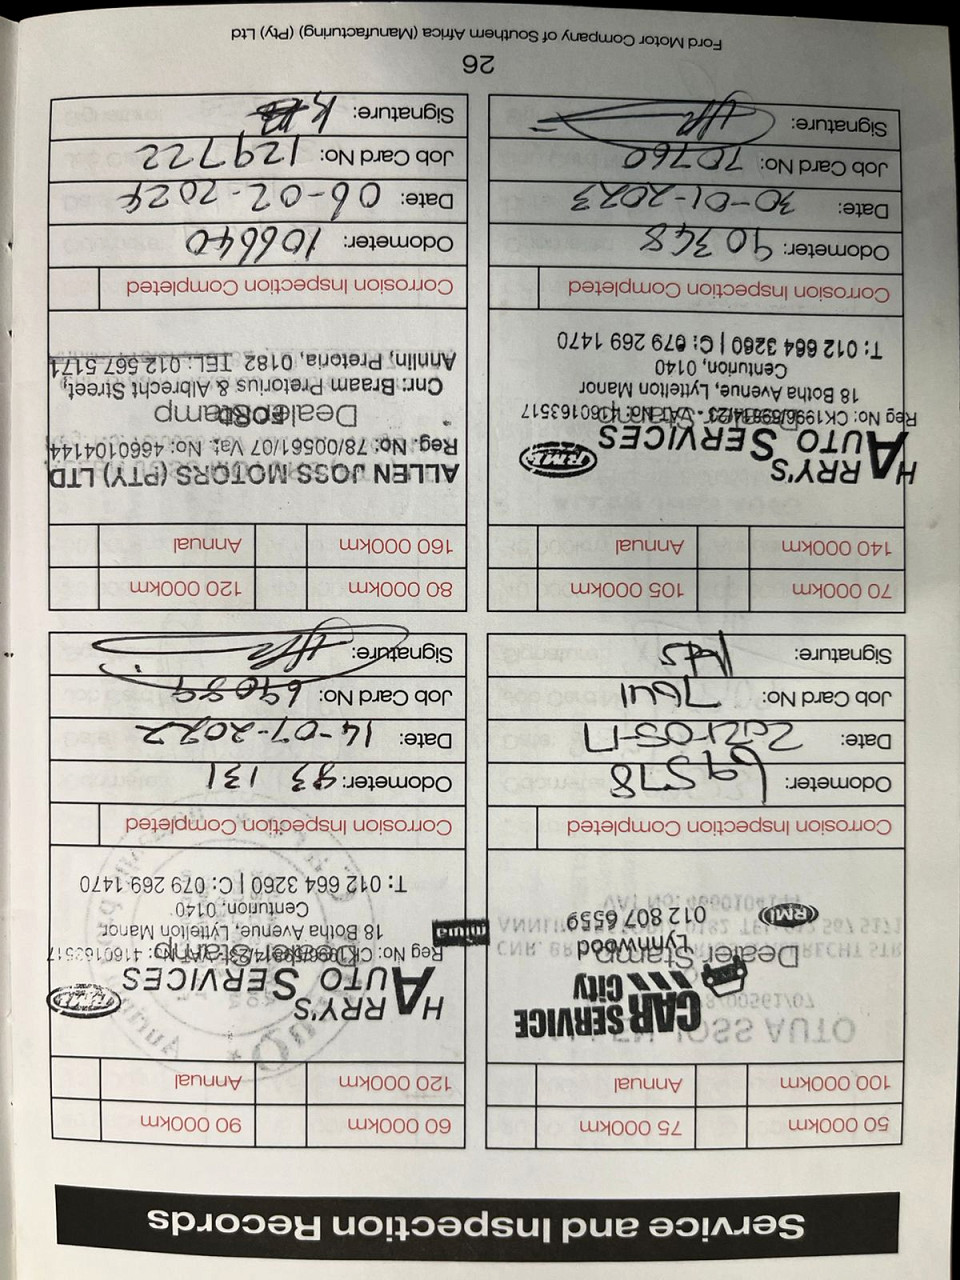 Service and Inspection Records
50 000km
75 000km
100 000km
Annual
CAR SERVICE
City
Dealer Stamp
Lynnwood
012 807 6559
RMI
Corrosion Inspection Completed
Odometer: 69578
Date: 2021-05-17
Job Card No: 7641
Signature:
60 000km
90 000km
120 000km
Annual
HARRY'S
AUTO SERVICES
RMI
Dealer Stamp
Reg No: CK1996/59814/23 · VAT No: 4160163517
18 Botha Avenue, Lyttelton Manor
Centurion, 0140
T: 012 664 3260 | C: 079 269 1470
Corrosion Inspection Completed
Odometer: 83 131
Date: 14-07-2022
Job Card No: 69089
Signature:
70 000km
105 000km
140 000km
Annual
HARRY'S
AUTO SERVICES
RMI
Reg No: CK1996/59814/23 · VAT No: 4160163517
18 Botha Avenue, Lyttelton Manor
Centurion, 0140
T: 012 664 3260 | C: 079 269 1470
Corrosion Inspection Completed
Odometer: 90348
Date: 30-01-2023
Job Card No: 70760
Signature:
80 000km
120 000km
160 000km
Annual
ALLEN JOSS MOTORS (PTY) LTD
Reg. No: 78/00561/07 Vat No: 4660104144
Dealer Stamp
FORD
Cnr: Braam Pretorius & Albrecht Street,
Annlin, Pretoria, 0182 TEL: 012 567 5171
Corrosion Inspection Completed
Odometer: 106640
Date: 06-02 2024
Job Card No: 129722
Signature:
26
Ford Motor Company of Southern Africa (Manufacturing) (Pty) Ltd